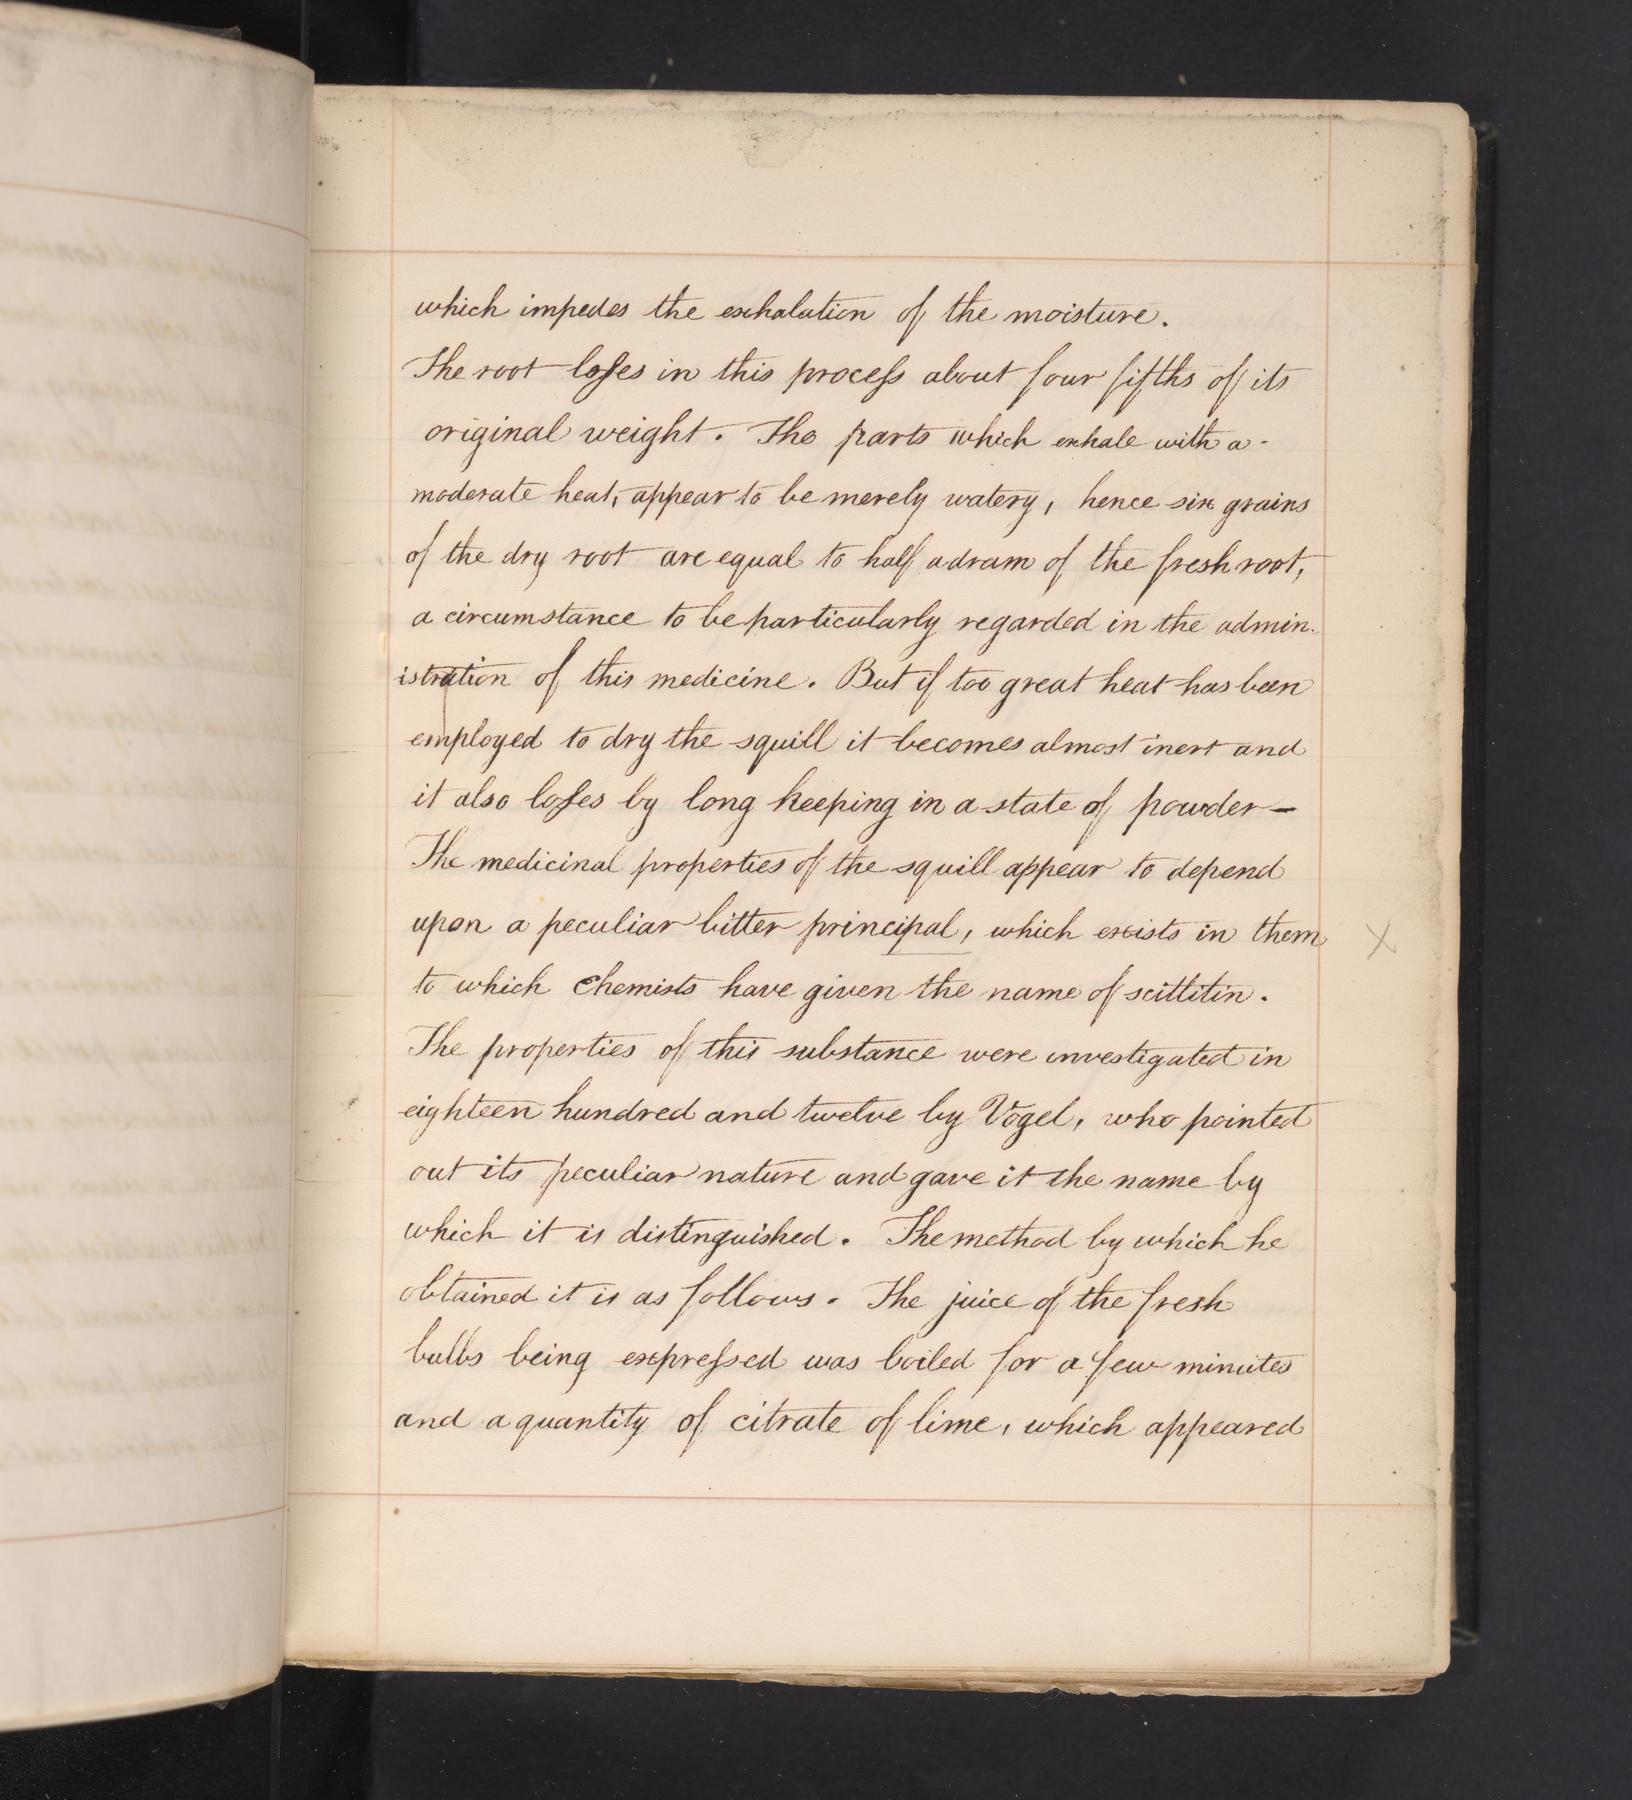 which impedes the exhalation of the moisture.
The root losses in this process about four fifths of its
original weight. The parts which exhale with a
moderate heat, appear to be merely watery, hence six grains
of the dry root are equal to half a dram of the fresh root,
a circumstance to be particularly regarded in the admin-
istration of this medicine. But if too great heat has been
employed to dry the squill it becomes almost inert and
it also losses by long keeping in a state of powder—
The medicinal properties of the squill appear to depend
upon a peculiar bitter principal, which exists in them
to which chemists have given the name of scittitin.
The properties of this substance were investigated in
eighteen hundred and twelve by Vogel, who pointed
out its peculiar nature and gave it the name by
which it is distinguished. The method by which he
obtained it is as follows. The juice of the fresh
bulbs being expressed was boiled for a few minutes
and a quantity of citrate of lime, which appeared